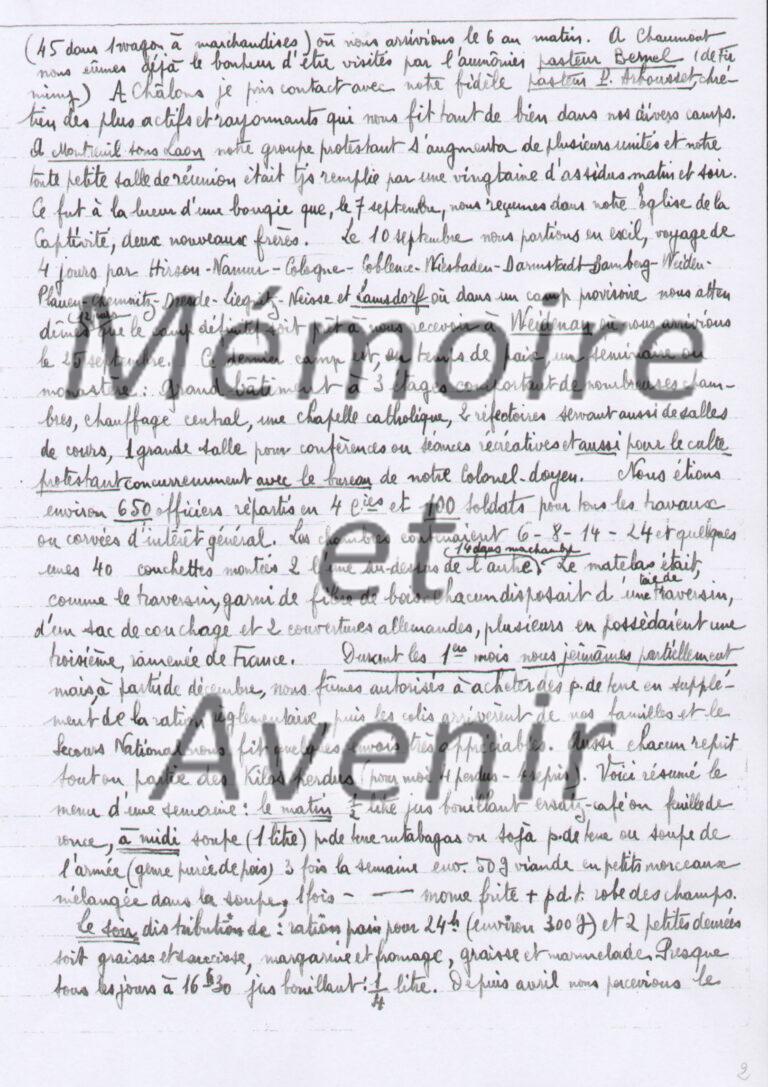 (45 dans 1 wagon à marchandises) où nous arrivions le 6 au matin. A Chaumont
nous eûmes déjà le bonheur d'être visités par l'aumônier pasteur Bernel (de Fir-
miny) A Châlons je pris contact avec notre fidèle pasteur P. Arbousset, chré-
tien des plus actifs et rayonnants qui nous fit tant de bien dans nos divers camps.
A Montreuil sous Laon notre groupe protestant s'augmenta de plusieurs unités et notre
toute petite salle de réunion était tjs remplie par une vingtaine d'assidus matin et soir.
Ce fut à la lueur d'une bougie que, le 7 septembre, nous reçumes dans notre Eglise de la
Captivité, deux nouveaux frères. Le 10 septembre nous partions en exil, voyage de
4 jours par Hirson - Namur - Cologne - Coblence - Wiesbaden - Darmstadt - Bamberg - Weiden -
Plauen - Chemnitz - Dresde - Liegnitz - Neisse et Lamsdorf où dans un camp provisoire nous atten
dîmes que le camp définitif soit prêt à nous recevoir à Weidenau où nous arrivions
le 25 septembre. Ce dernier camp est, en temps de paix, un séminaire ou
monastère : Grand bâtiment à 3 étages comportant de nombreuses cham-
bres, chauffage central, une chapelle catholique, 2 réfectoires servant aussi de salles
de cours, 1 grande salle pour conférences ou séances récréatives et aussi pour le culte
protestant concurremment avec le bureau de notre Colonel-doyen. Nous étions
environ 650 officiers répartis en 4 Cies et 100 soldats pour tous les travaux
ou corvées d'intérêt général. Les chambres contenaient 6 - 8 - 14 - 24 et quelques
unes 40 couchettes montées 2 l'une au-dessus de l'autre (14 dans ma chambre). Le matelas était,
comme le traversin, garni de fibre de bois, chacun disposait d'une taie de traversin,
d'un sac de couchage et 2 couvertures allemandes, plusieurs en possédaient une
troisième, ramenée de France. Durant les 1ers mois nous jeûnâmes partiellement
mais, à partir de décembre, nous fûmes autorisés à acheter des p. de terre en supplé-
ment de la ration réglementaire, puis les colis arrivèrent de nos familles et le
Secours National nous fit quelques envois très appréciables. Aussi chacun reprit
tout ou partie des Kilos perdus (pour moi 4 perdus - repris). Voici résumé le
menu d'une semaine : le matin 1/2 litre jus bouillant ersatz-café ou feuille de
ronce, à midi soupe (1 litre) p. de terre rutabagas ou soja p. de terre ou soupe de
l'armée (genre purée de pois) 3 fois la semaine env. 50 g viande en petits morceaux
mélangée dans la soupe, 1 fois - — morue frite + p. d. t. robe des champs.
Le soir distribution de : ration pain pour 24h (environ 300 g) et 2 petites denrées
soit graisse et saucisse, margarine et fromage, graisse et marmelade. Presque
tous les jours à 16h30 jus bouillant : 1/4 litre. Depuis avril nous percevions le
2
Mémoire
et
Avenir